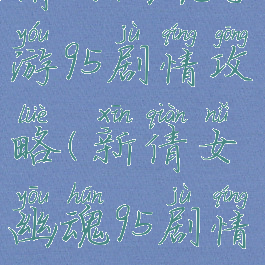 yóu jù qíng gōng
游95剧情攻
lüè xīn qiàn nǚ
略(新倩女
yōu hún jù qíng
幽魂95剧情